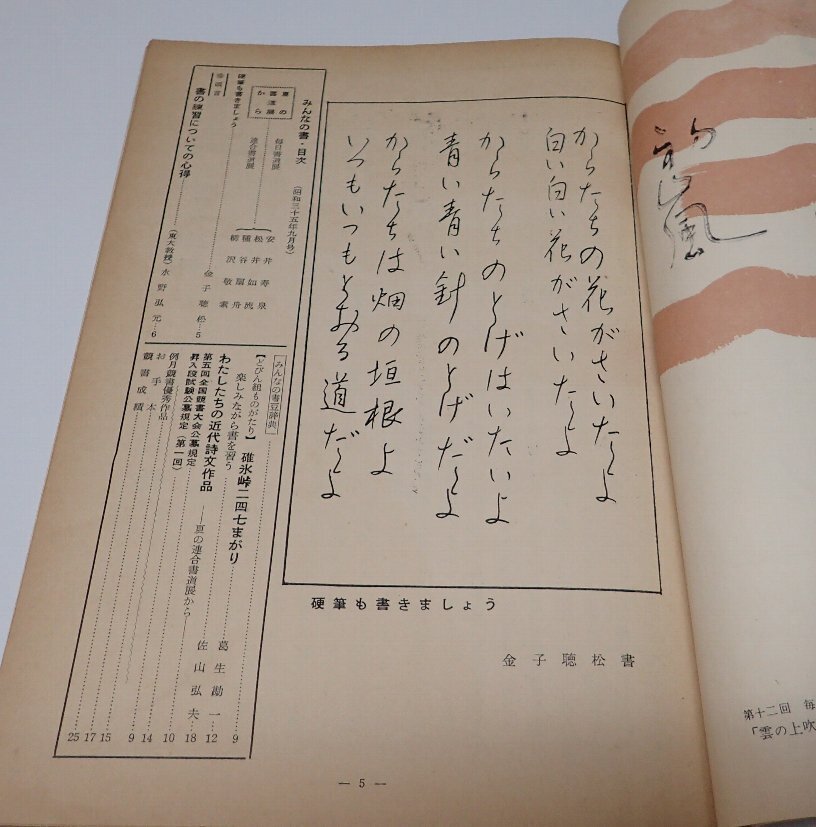 からたちの花がさいたよ
白い白い花がさいたよ
からたちのとげはいたいよ
青い青い針のとげだよ
からたちは畑の垣根よ
いつもいつもとおる道だよ
硬筆も書きましょう
金子聴松書
みんなの書・目次
(昭和三十五年九月号)
夏の書道展から
毎日書道展
連合書道展
安井寿泉
松井如流
種谷扇舟
柳沢敬素
硬筆も書きましょう
金子聴松…5
書の練習についての心得
(東大教授)水野弘元…6
【みんなの書豆辞典】
9
【とびん組ものがたり】碓氷峠二四七まがり
葛生勘一 12
楽しみながら書を習う
佐山弘夫 18
わたしたちの近代詩文作品
——夏の連合書道展から
第五回全国競書大会公募規定
10
昇入段試験公募規定(第一回)
14
例月競書優秀作品
9
お手本
15 17
競書成績
25
— 5 —
風
第十二回 毎
「雲の上吹